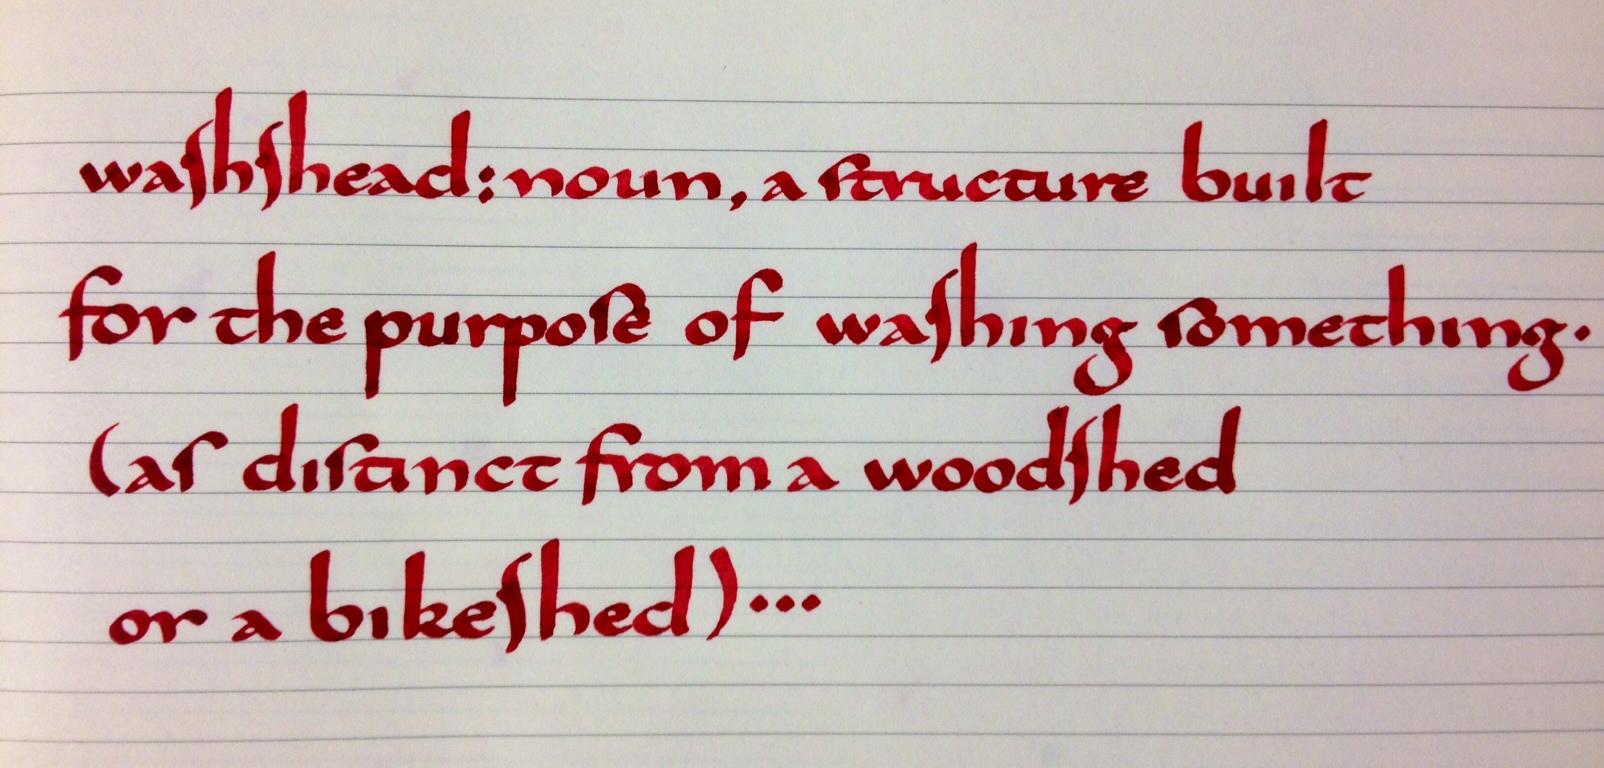 waſhſhead: noun, a ſtructure built
for the purpoſe of waſhıng ſomethıng.
(aſ dıſtınct from a woodſhed
or a bıkeſhed)...